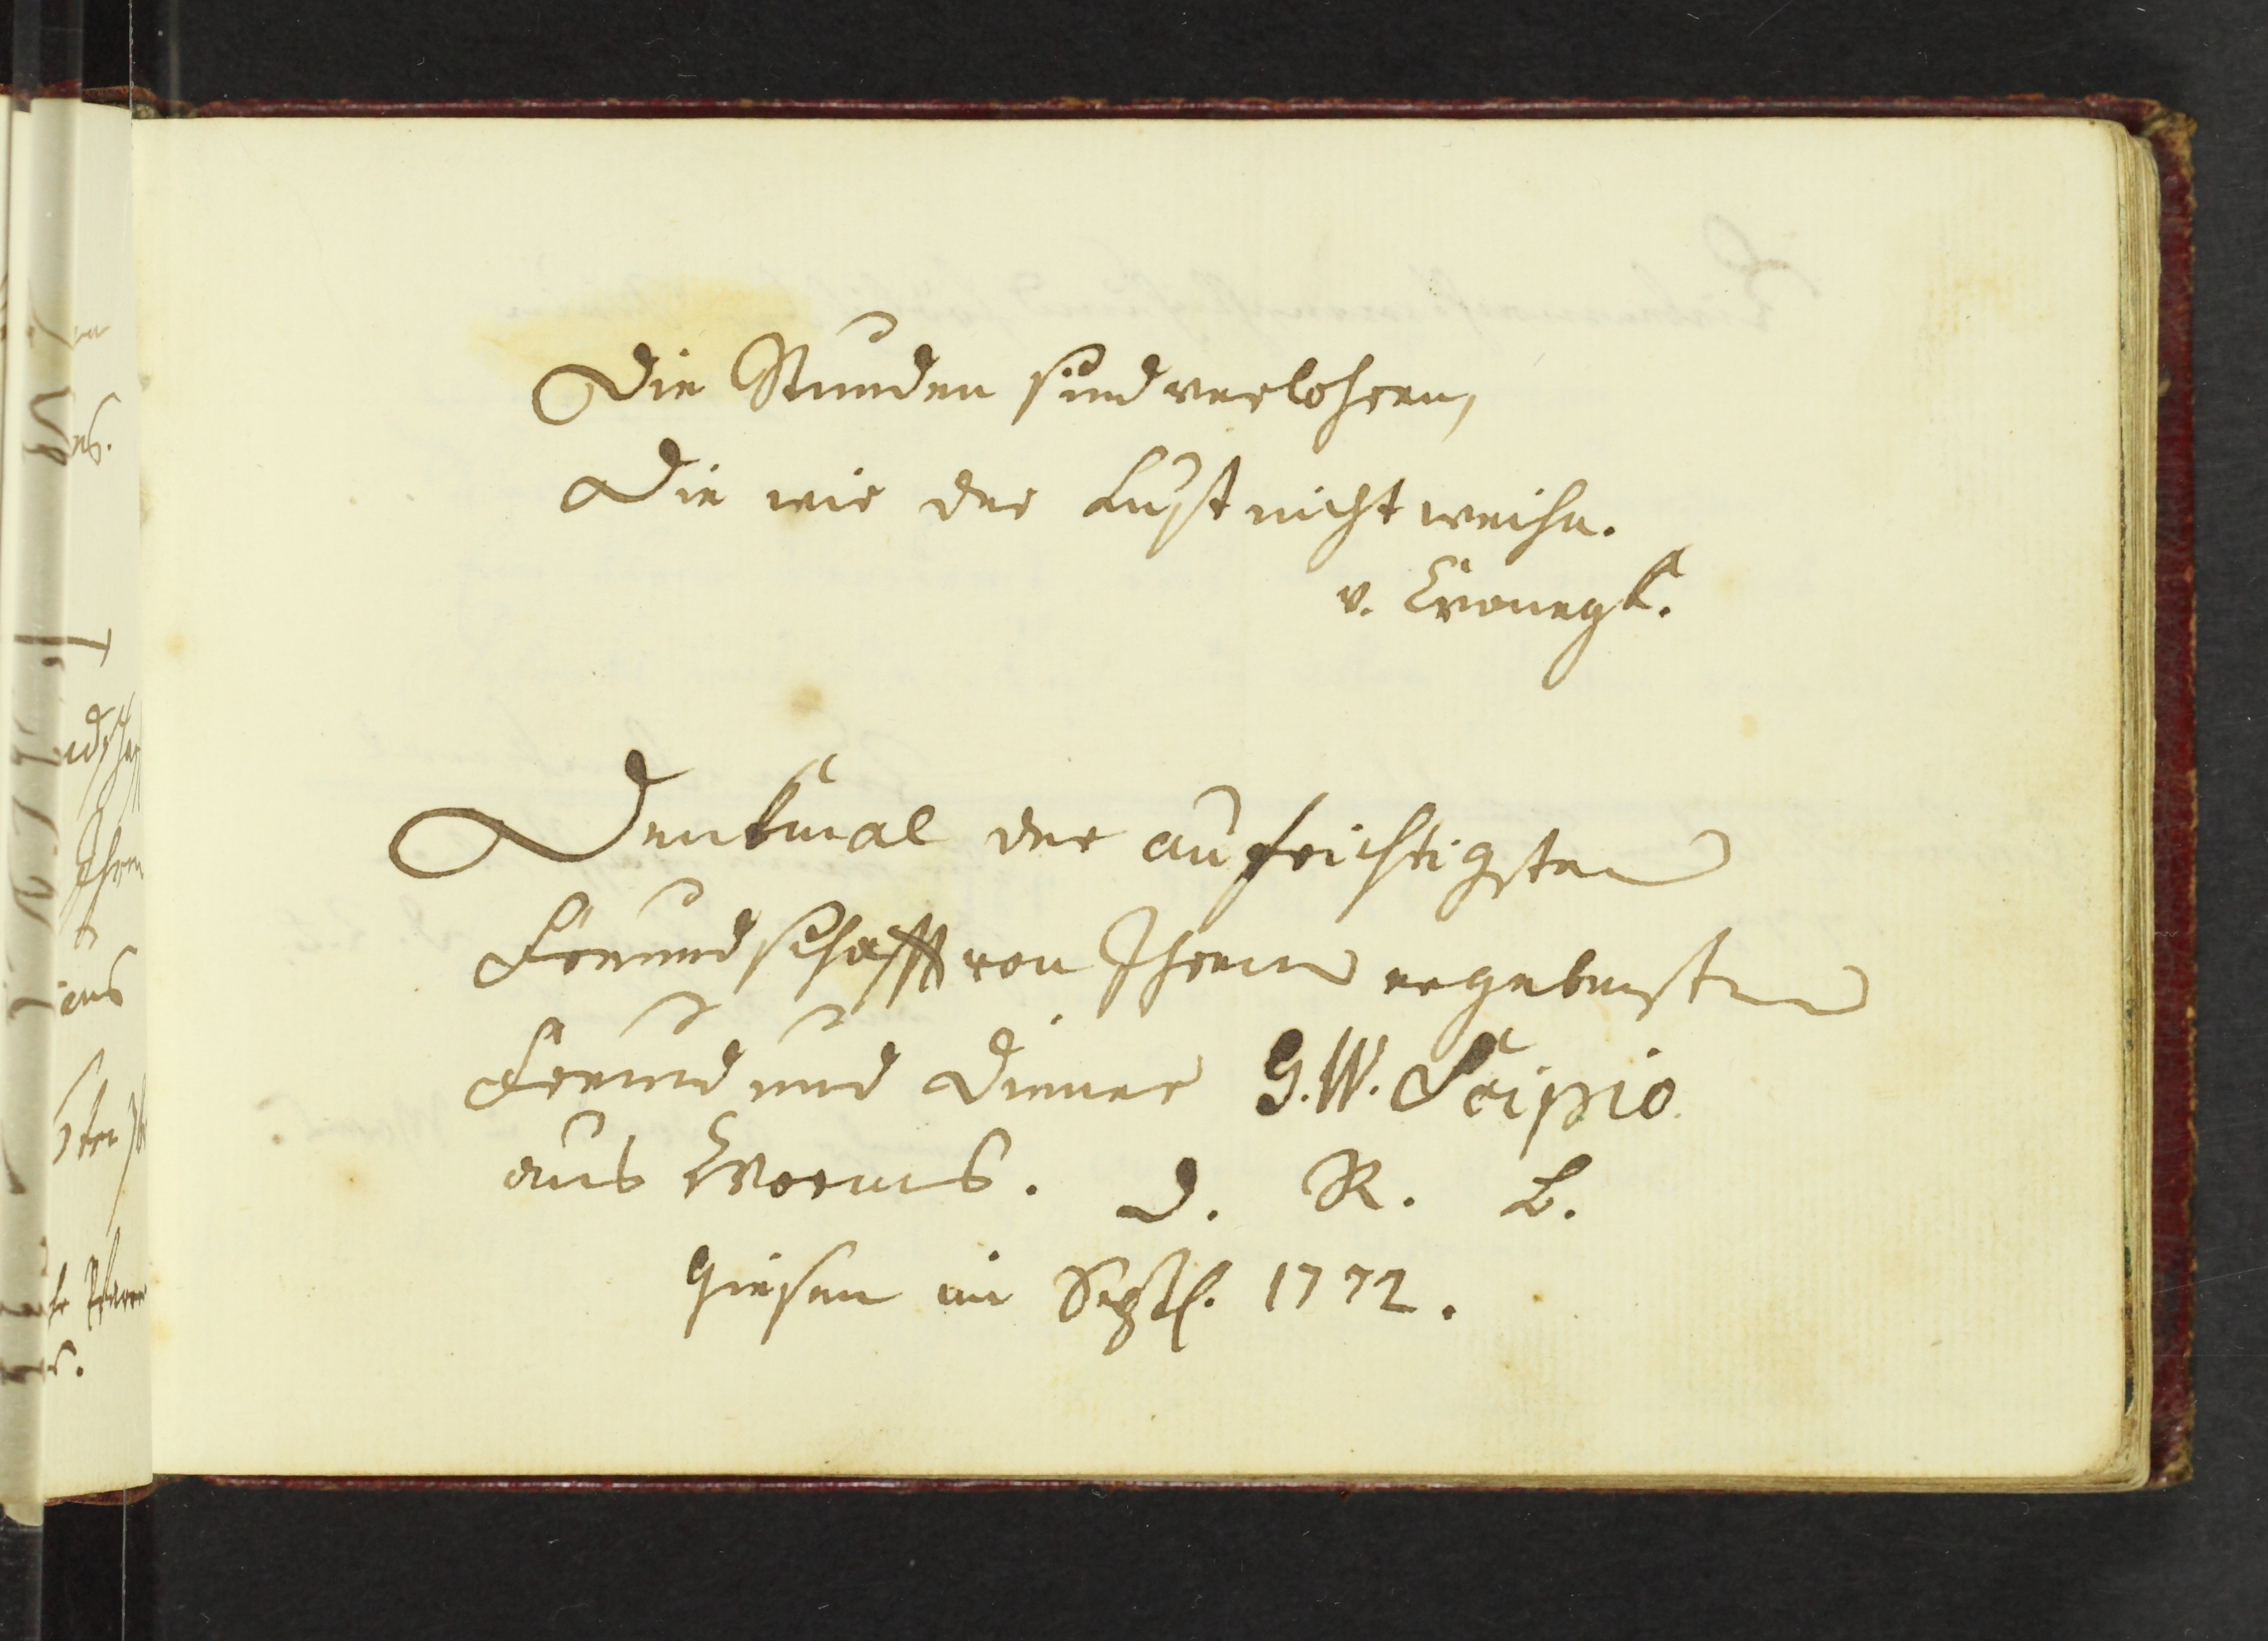 Die Stunden sind verlohren,
Die wir der Lust nicht weihn.
v. Cronegk.
Denkmal der aufrichtigsten
Freundschafft von Ihrem ergebensten
Freund und Diener G. W. Scipio
aus Worms. D. R. B.
Giesen im Sept. 1772.